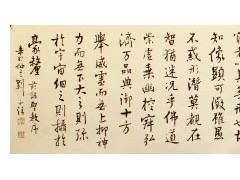 知象顯可徵雖愚
不惑形潛莫覩在
智猶迷況乎佛道
崇虛乘幽控寂弘
濟萬品典御十方
舉威靈而无上抑神
力而无下大之則彌
於宇宙細之則攝於
毫釐